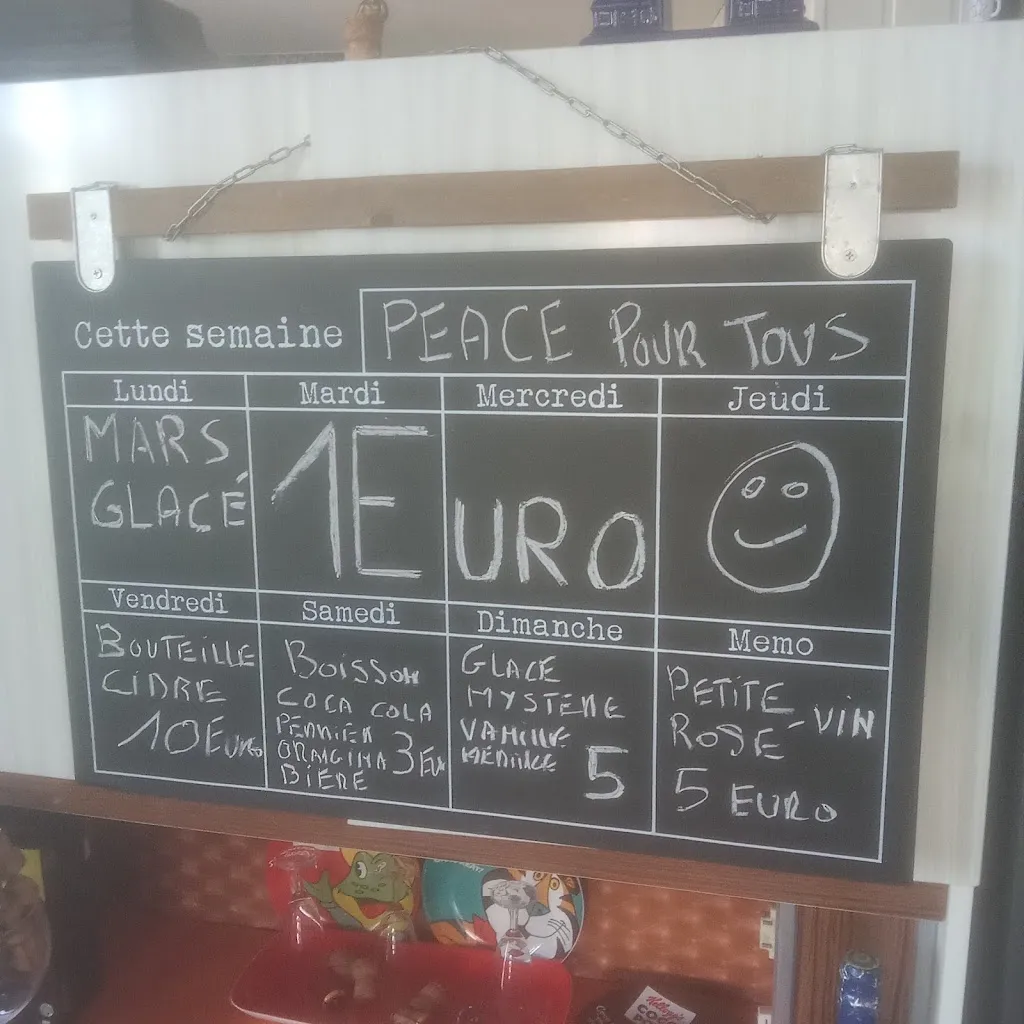 Cette semaine
PEACE POUR TOUS
Lundi Mardi Mercredi Jeudi
MARS
GLACÉ
1EURO
Vendredi Samedi Dimanche Memo
BOUTEILLE
CIDRE
10 EURO
BOISSON
COCA COLA
PERRIER
ORANGINA 3 EU
BIERE
GLACE
MYSTERE
VANILLE
5
PETITE VIN
ROSÉ
5 EURO
Kellogg's
COCO